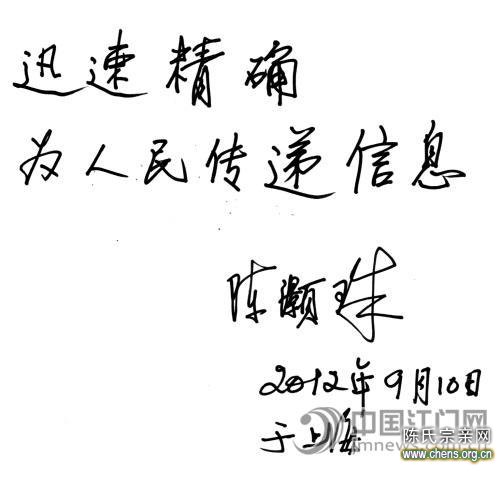 迅速精确
为人民传递信息
陈灏珠
2012年9月10日
于上海
中国江门网
jmnews.com.cn
陈氏宗亲网
www.chens.org.cn